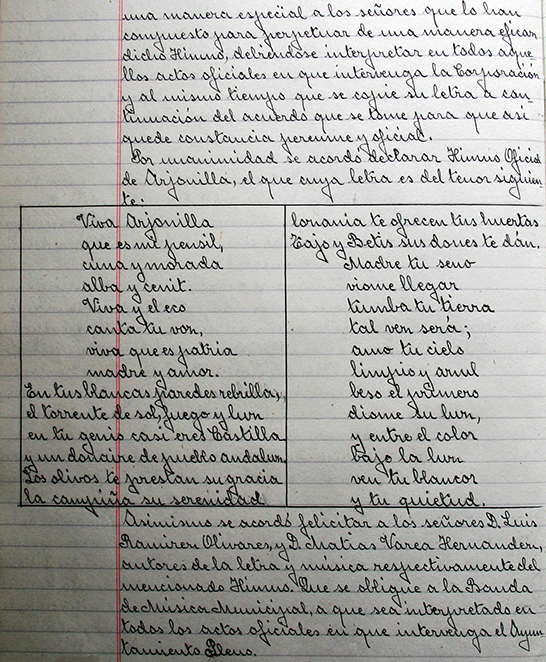 una manera especial a los señores que lo han
compuesto para perpetuar de una manera eficaz
dicho Himno, debiéndose interpretar en todos aque-
llos actos oficiales en que intervenga la Corporación
y al mismo tiempo que se copie su letra a con-
tinuación del acuerdo que se tome para que así
quede constancia perenne y oficial.
Por unanimidad se acordó declarar Himno Oficial
de Arjonilla, el que cuya letra es del tenor siguien-
te:
Viva Arjonilla
que es mi pensil,
cuna y morada
alba y cenit.
Viva y el eco
canta tu voz,
viva que es patria
madre y amor.
En tus blancas paredes rebrilla,
el torrente de sol, fuego y luz
en tu genio casi eres Castilla
y un donaire de pueblo andaluz.
Los olivos te prestan su gracia
la campiña su serenidad
lozania te ofrecen tus huertas
Tajo y Betis sus dones te dán.
Madre tu seno
viome llegar
tumba tu tierra
tal vez será;
amo tu cielo
limpio y azul
beso el primero
diome su luz,
y entre el color
bajo la luz
ven tu blancor
y tu quietud.
Asimismo se acordó felicitar a los señores D. Luis
Ramirez Olivares, y D. Matias Varea Hernandez,
autores de la letra y música respectivamente del
mencionado Himno. Que se obligue a la Banda
de Música Municipal, a que sea interpretado en
todos los actos oficiales en que intervenga el Ayun-
tamiento Pleno.